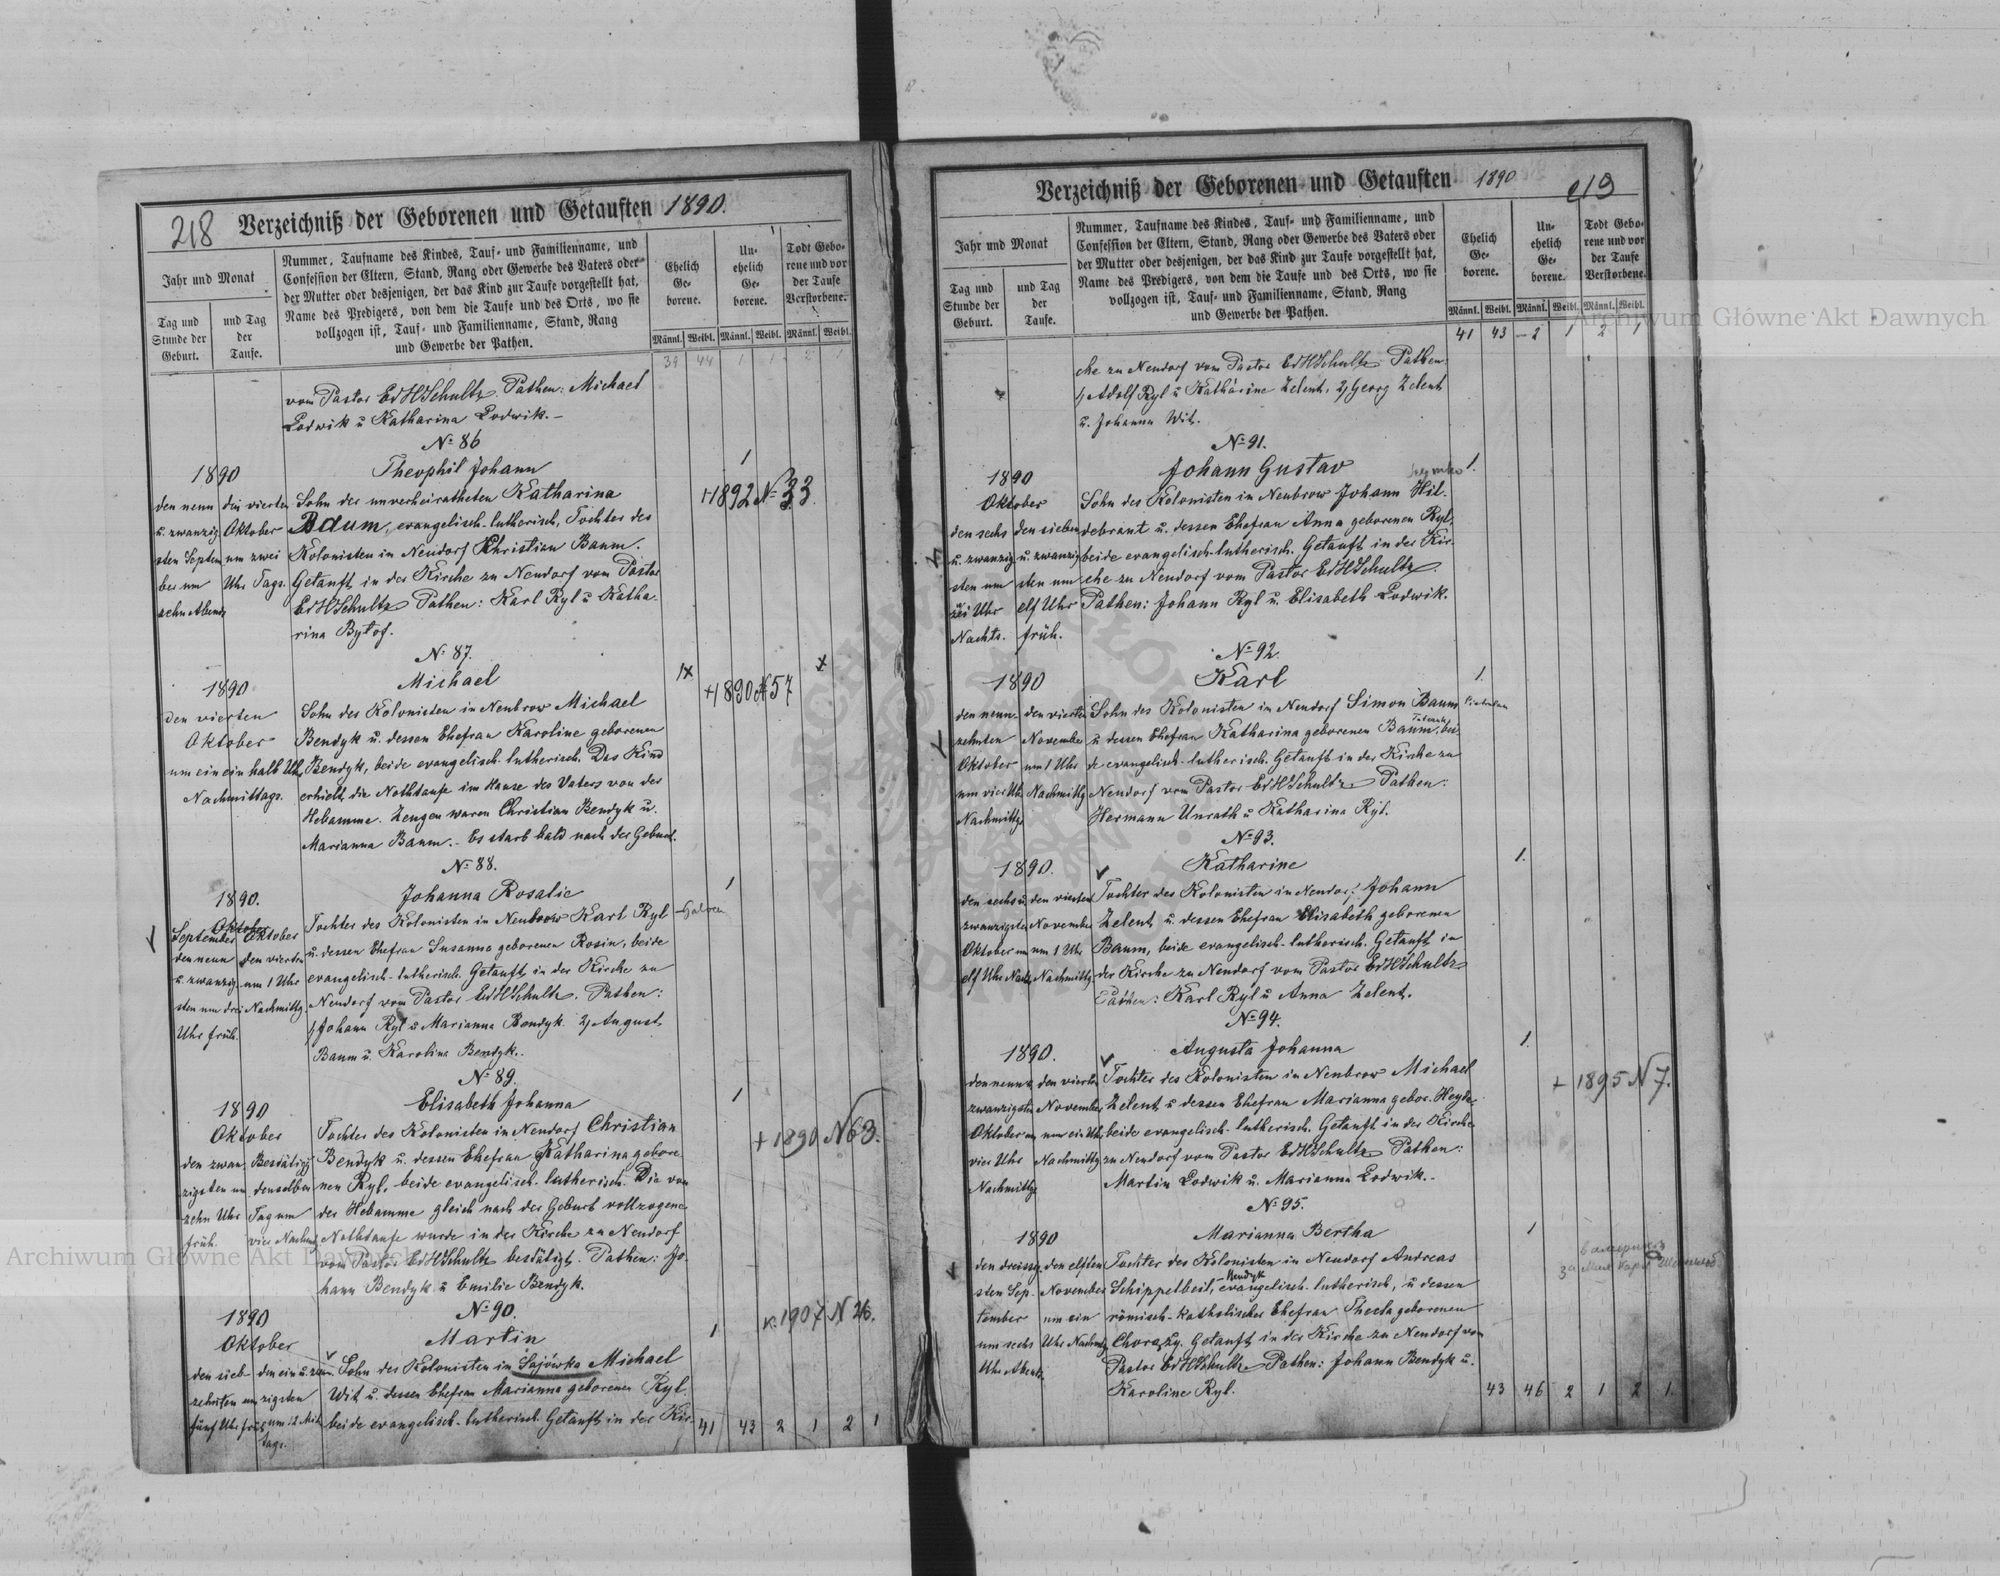 218 Verzeichniß der Geborenen und Getauften 1890.
Jahr und Monat
Tag und
Stunde der
Geburt.
und Tag
der
Taufe.
Nummer, Taufname des Kindes, Tauf- und Familienname, und
Confession der Eltern, Stand, Rang oder Gewerbe des Vaters oder
der Mutter oder desjenigen, der das Kind zur Taufe vorgestellt hat,
Name des Predigers, von dem die Taufe und des Orts, wo sie
vollzogen ist, Tauf- und Familienname, Stand, Rang
und Gewerbe der Pathen.
Ehelich
Ge-
borene.
Un-
ehelich
Ge-
borene.
Todt Gebo-
rene und vor
der Taufe
Verstorbene.
Männl. Weibl. Männl. Weibl. Männl. Weibl.
39 44 1 1 2 1
vom Pastor EdHSchultz. Pathen: Michael
Lodwik u Katharina Lodwik. –
№ 86
1890
Theophil Johann
1
den neun
u. zwanzig
sten Septem
ber um
zehn Abends
den vierten
Oktober
um zwei
Uhr Tags.
Sohn der unverheiratheten Katharina
Baum, evangelisch-lutherisch, Tochter des
Kolonisten in Neudorf Christian Baum.
Getauft in der Kirche zu Neudorf vom Pastor
EdHSchultz Pathen: Karl Ryl u Katha-
rina Bytof.
+1892 № 33.
№ 87.
1890
Michael
den vierten
Oktober
um ein ein halb Uhr
Nachmittags.
Sohn des Kolonisten in Neubrow Michael
Bendyk u. dessen Ehefrau Karoline geborenen
Bendyk, beide evangelisch-lutherisch. Das Kind
erhielt die Nothtaufe im Hause des Vaters von der
Hebamme. Zeugen waren Christian Bendyk u.
Marianna Baum. - Es starb bald nach der Geburt.
+1890 № 57
№ 88.
1890.
Johanna Rosalie
1
September Oktober
den neun
u. zwanzig-
sten um drei
Uhr früh.
Oktober
den vierten
um 1 Uhr
Nachmittg.
Tochter des Kolonisten in Neubrow Karl Ryl
u. dessen Ehefrau Susanna geborenen Rosin, beide
evangelisch-lutherisch. Getauft in der Kirche zu
Neudorf vom Pastor EdHSchultz. Pathen:
1, Johann Ryl u Marianna Bendyk. 2, August
Baum u. Karolina Bendyk.
№ 89.
1890
Oktober
Elisabeth Johanna
1
den zwan
zigsten um
zehn Uhr
früh.
Bestätigt
denselben
Tag um
vier Nachmittg
Tochter des Kolonisten in Neudorf Christian
Bendyk u. dessen Ehefrau Katharina gebore-
nen Ryl, beide evangelisch-lutherisch. Die von
der Hebamme gleich nach der Geburt vollzogene
Nothtaufe wurde in der Kirche zu Neudorf
vom Pastor EdHSchultz bestätigt. Pathen: Jo-
hann Bendyk u Emilie Bendyk.
+ 1890 № 63.
№ 90.
1890
Oktober
Martin
1
den sieb
zehnten um
fünf Uhr früh
den ein u. zwan-
zigsten
um 12 Mit
tags.
Sohn des Kolonisten in Sajówka Michael
Wit u. dessen Ehefrau Marianna geborenen Ryl.
beide evangelisch-lutherisch. Getauft in der Kir-
1907 № 26.
41 43 2 1 2 1
Verzeichniß der Geborenen und Getauften 1890
Jahr und Monat
Tag und
Stunde der
Geburt.
und Tag
der
Taufe.
Nummer, Taufname des Kindes, Tauf- und Familienname, und
Confession der Eltern, Stand, Rang oder Gewerbe des Vaters oder
der Mutter oder desjenigen, der das Kind zur Taufe vorgestellt hat,
Name des Predigers, von dem die Taufe und des Orts, wo sie
vollzogen ist, Tauf- und Familienname, Stand, Rang
und Gewerbe der Pathen.
Ehelich
Ge-
borene.
Un-
ehelich
Ge-
borene.
Todt Gebo-
rene und vor
der Taufe
Verstorbene.
Männl. Weibl. Männl. Weibl. Männl. Weibl.
41 43 2 1 2 1
che zu Neudorf vom Pastor EdHSchultz. Pathen:
1, Adolf Ryl u Katharine Zelent, 2, Georg Zelent
u. Johanna Wit.
№ 91.
1890
Oktober
Johann Gustav
1.
den sechs
u. zwanzig
sten um
Uhr
Nachts.
den sieben
u. zwanzig
sten um
elf Uhr
früh.
Sohn des Kolonisten in Neubrow Johann Hil-
debrant u. dessen Ehefrau Anna geborenen Ryl,
beide evangelisch-lutherisch. Getauft in der Kir-
che zu Neudorf vom Pastor EdHSchultz
Pathen: Johann Ryl u. Elisabeth Lodwik.
№ 92.
1890
Karl
1.
den neun-
zehnten
Oktober
um vier Uhr
Nachmittg
den vierten
November
um 1 Uhr
Nachmittg
Sohn des Kolonisten in Neudorf Simon Baum
u dessen Ehefrau Katharina geborenen Baum, bei-
de evangelisch-lutherisch. Getauft in der Kirche zu
Neudorf vom Pastor EdHSchultz Pathen:
Hermann Unrath u Katharina Ryl.
№ 93.
1890.
Katharine
1.
den sechs u.
zwanzigsten
Oktober um
elf Uhr Nachts
den vierten
November
um 1 Uhr
Nachmittg.
Tochter des Kolonisten in Neudorf Johann
Zelent u. dessen Ehefrau Elisabeth geborenen
Baum, beide evangelisch-lutherisch. Getauft in
der Kirche zu Neudorf vom Pastor EdHSchultz
Pathen: Karl Ryl u Anna Zelent.
№ 94.
1890.
Augusta Johanna
1.
den neun u.
zwanzigsten
Oktober um
vier Uhr
Nachmittg
den vierten
November
um ein Uhr
Nachmittg
Tochter des Kolonisten in Neubrow Michael
Zelent u dessen Ehefrau Marianna gebor. Heyde,
beide evangelisch-lutherisch. Getauft in der Kirche
zu Neudorf vom Pastor EdHSchultz Pathen:
Martin Lodwik u. Marianna Lodwik.
+ 1895 № 7.
№ 95.
1890
Marianna Bertha
1
den dreissig-
sten Sep-
tember
um sechs
Uhr Abends
den elften
November
um ein
Uhr Nachmittg
Tochter des Kolonisten in Neudorf Andreas
Schippelbeil, evangelisch-lutherisch, u dessen
römisch-katholischer Ehefrau Thecla geborenen
Chorąży. Getauft in der Kirche zu Neudorf vom
Pastor EdHSchultz Pathen: Johann Bendyk u.
Karoline Ryl.
43 46 2 1 2 1.
Archiwum Główne Akt Dawnych
Archiwum Główne Akt Dawnych